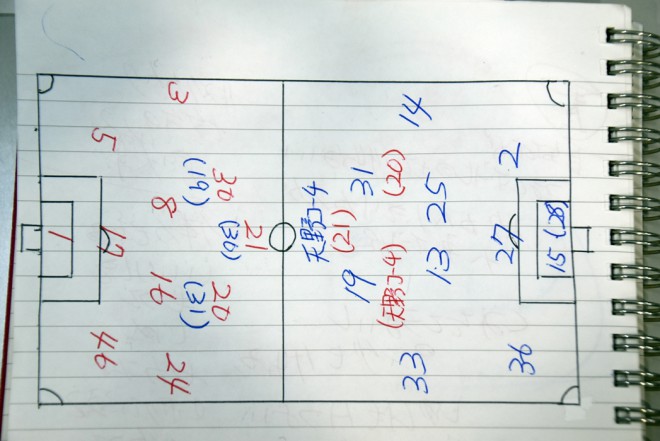 3
5
30
(19)
8
21
(30)
1
17
16
20
(31)
46
24
14
2
31
(20)
25
天野コーチ
(21)
27
15 (28)
13
19
(天野コーチ)
33
36